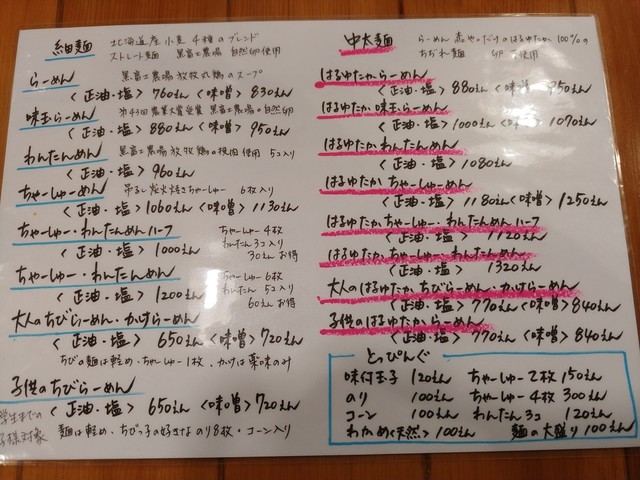 細麺 北海道産小麦4種のブレンド
ストレート麺 黒富士農場 自然卵使用
らーめん 黒富士農場放牧鶏のスープ
<正油・塩> 760えん <味噌> 830えん
味玉らーめん 第43回農業大賞受賞 黒富士農場の自然卵
<正油・塩> 880えん <味噌> 950えん
わんたんめん 黒富士農場 放牧鶏の 使用 5コ入り
<正油・塩> 960えん
ちゃーしゅーめん 吊るし炭火焼きちゃーしゅー 6枚入り
<正油・塩> 1060えん <味噌> 1130えん
ちゃーしゅー・わんたんめんハーフ ちゃーしゅー4枚
わんたん3コ入り
<正油・塩> 1000えん 30えんお得
ちゃーしゅー・わんたんめん ちゃーしゅー6枚
わんたん 5コ入り
<正油・塩> 1200えん 60えんお得
大人のちびらーめん・かけらーめん
<正油・塩> 650えん <味噌> 720えん
ちびの麺は軽め・ちゃーしゅー1枚・かけは薬味のみ
子供のちびらーめん
<正油・塩> 650えん <味噌> 720えん
学生までの
子様対象 麺は軽め・ちびっ子の好きなのり8枚・コーン入り
中太麺 らーめん のはるゆたか100%の
ちぢれ麺 卵 使用
はるゆたからーめん
<正油・塩> 880えん <味噌> 950えん
はるゆたか味玉らーめん
<正油・塩> 1000えん 1070えん
はるゆたかわんたんめん
<正油・塩> 1080えん
はるゆたかちゃーしゅーめん
<正油・塩> 1180えん <味噌> 1250えん
はるゆたかちゃーしゅー・わんたんめんハーフ
<正油・塩> 1120えん
はるゆたかちゃーしゅー・わんたんめん
<正油・塩> 1320えん
大人のはるゆたかちびらーめん・かけらーめん
<正油・塩> 770えん <味噌> 840えん
子供のはるゆたからーめん
<正油・塩> 770えん <味噌> 840えん
とっぴんぐ
味付玉子 120えん ちゃーしゅー2枚 150えん
のり 100えん ちゃーしゅー4枚 300えん
コーン 100えん わんたん3コ 120えん
わかめ<天然> 100えん 麺の大盛り 100えん